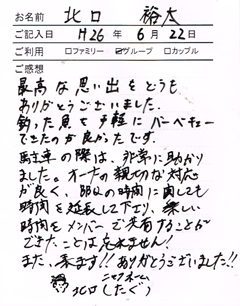 お名前 北口 裕太
ご記入日 H26年 6月 22日
ご利用 □ファミリー ☑グループ □カップル
ご感想
最高な思い出をどうも
ありがとうございました。
釣った魚を手軽にバーベキュー
できたのが良かったです。
駐車の際は、非常に助かり
ました。オーナの親切な対応
が良く、の時間に関しても
時間を延長して下さり、楽しい
時間をメンバーで共有することが
できたことは忘れません!
また、来ます!!ありがとうございました!!
ニックネーム
北口(したぐ)